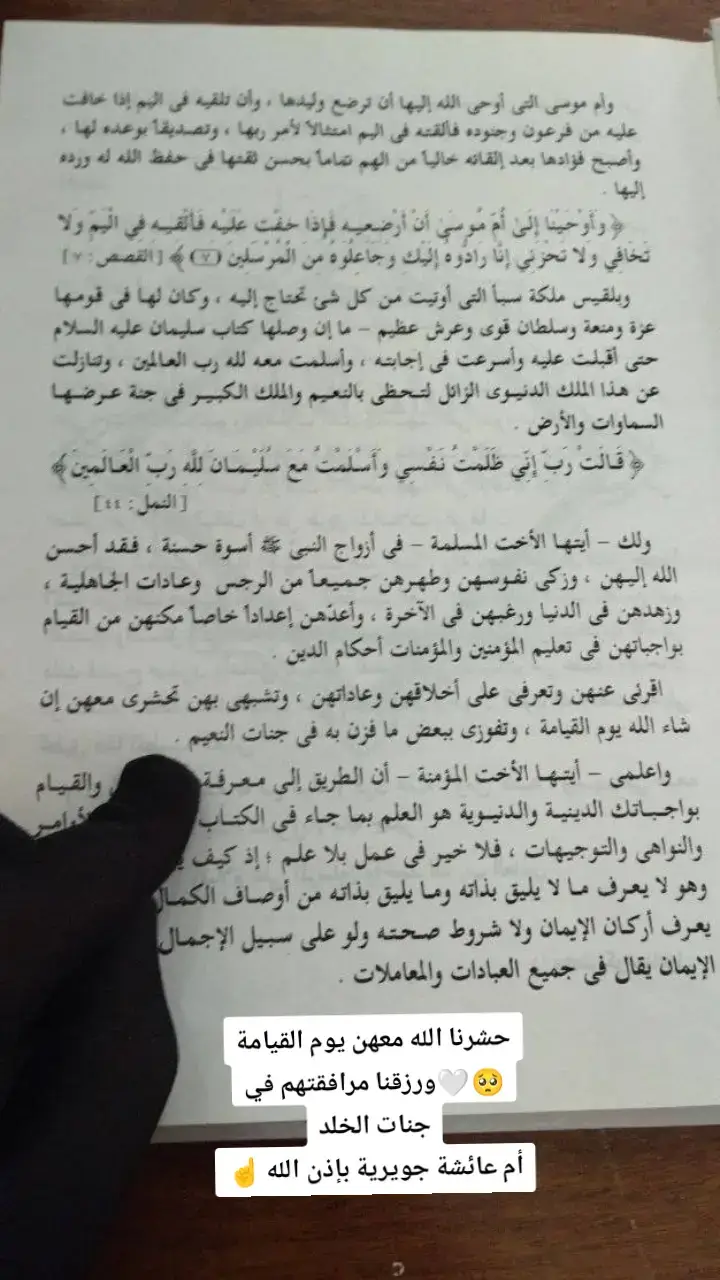 وأم موسى التى أوحى الله إليها أن ترضع وليدها ، وأن تلقيه فى اليم إذا خافت
عليه من فرعون وجنوده فألقته فى اليم امتثالاً لأمر ربها ، وتصديقاً بوعده لها ،
وأصبح فؤادها بعد إلقائه خالياً من الهم تماماً بحسن ثقتها فى حفظ الله له ورده
إليها .
﴿ وَأَوْحَيْنَا إِلَىٰ أُمِّ مُوسَىٰ أَنْ أَرْضِعِيهِ فَإِذَا خِفْتِ عَلَيْهِ فَأَلْقِيهِ فِي الْيَمِّ وَلا
تَخَافِي وَلا تَحْزَنِي إِنَّا رَادُّوهُ إِلَيْكِ وَجَاعِلُوهُ مِنَ الْمُرْسَلِينَ (٧) ﴾ [القصص : ٧]
وبلقيس ملكة سبأ التى أوتيت من كل شئ تحتاج إليه ، وكان لها فى قومها
عزة ومنعة وسلطان قوى وعرش عظيم – ما إن وصلها كتاب سليمان عليه السلام
حتى أقبلت عليه وأسرعت فى إجابته ، وأسلمت معه لله رب العالمين ، وتنازلت
عن هذا الملك الدنيوى الزائل لتحظى بالنعيم والملك الكبير فى جنة عرضها
السماوات والأرض .
﴿ قَالَتْ رَبِّ إِنِّي ظَلَمْتُ نَفْسِي وَأَسْلَمْتُ مَعَ سُلَيْمَانَ لِلَّهِ رَبِّ الْعَالَمِينَ ﴾
[النمل : ٤٤]
ولك – أيتها الأخت المسلمة – فى أزواج النبى ﷺ أسوة حسنة ، فقد أحسن
الله إليهن ، وزكى نفوسهن وطهرهن جميعاً من الرجس وعادات الجاهلية ،
وزهدهن فى الدنيا ورغبهن فى الآخرة ، وأعدّهن إعداداً خاصاً مكنهن من القيام
بواجباتهن فى تعليم المؤمنين والمؤمنات أحكام الدين .
اقرئى عنهن وتعرفى على أخلاقهن وعاداتهن ، وتشبهى بهن تحشرى معهن إن
شاء الله يوم القيامة ، وتفوزى ببعض ما فزن به فى جنات النعيم .
واعلمى – أيتها الأخت المؤمنة – أن الطريق إلى معرفة والقيام
بواجباتك الدينية والدنيوية هو العلم بما جاء فى الكتاب الأوامر
والنواهى والتوجيهات ، فلا خير فى عمل بلا علم ؛ إذ كيف
وهو لا يعرف ما لا يليق بذاته وما يليق بذاته من أوصاف الكمال
يعرف أركان الإيمان ولا شروط صحته ولو على سبيل الإجمال
الإيمان يقال فى جميع العبادات والمعاملات .
حشرنا الله معهن يوم القيامة
🥺🤍ورزقنا مرافقتهم في
جنات الخلد
أم عائشة جويرية بإذن الله ☝️